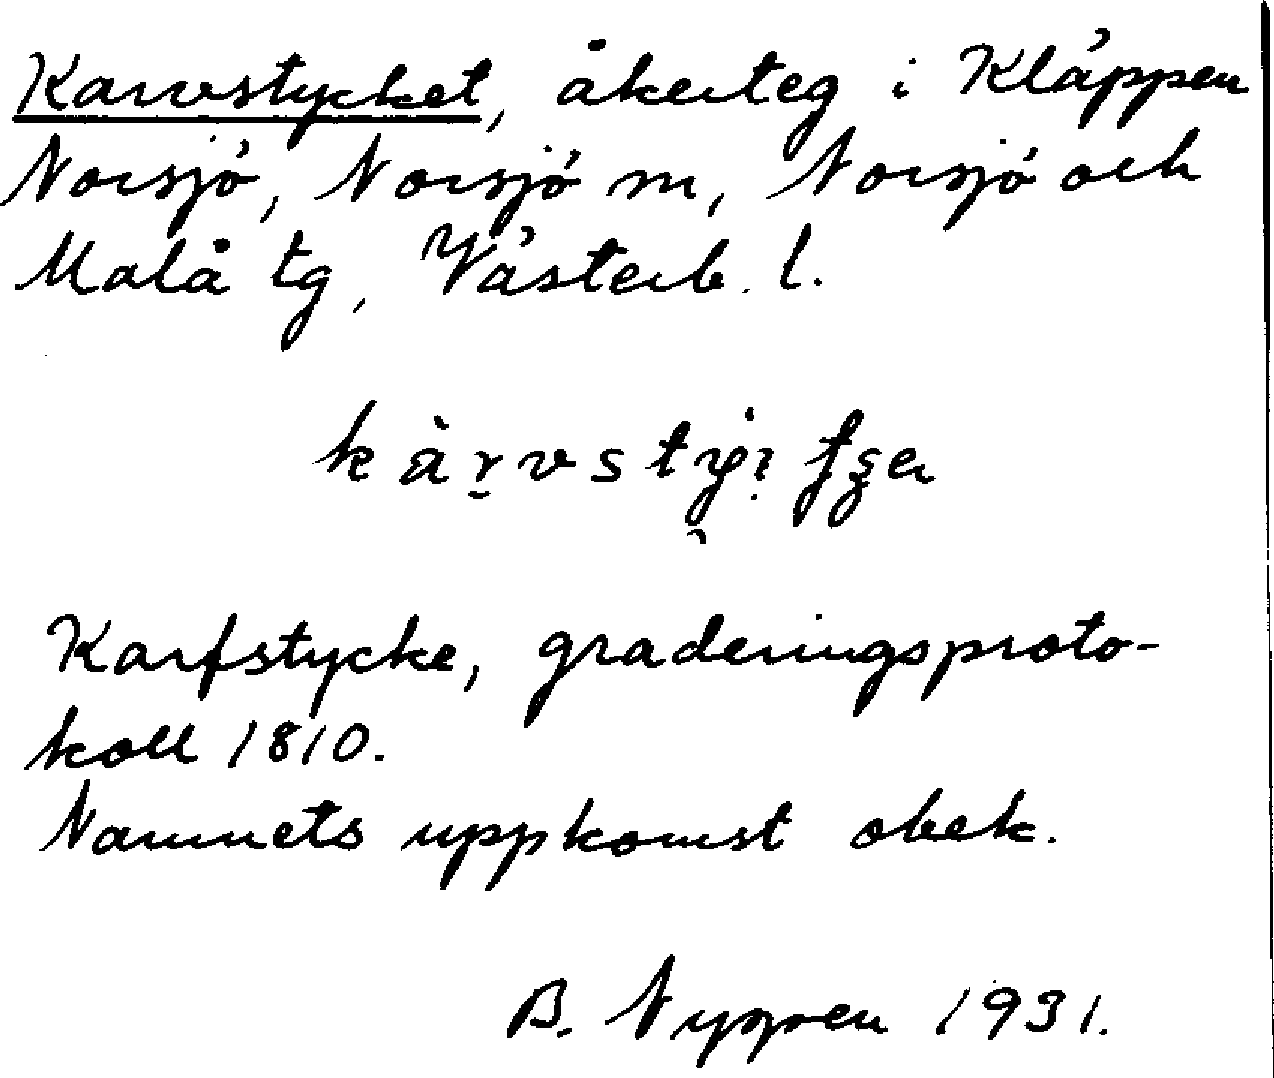 Karvstycket, åkerteg i Kläppen
Norsjö, Norsjö sn, Norsjö och
Malå tg, Västerb. l.
Karfstycke, graderingsproto-
koll 1810.
Namnets uppkomst obek.
B. Nygren 1931.